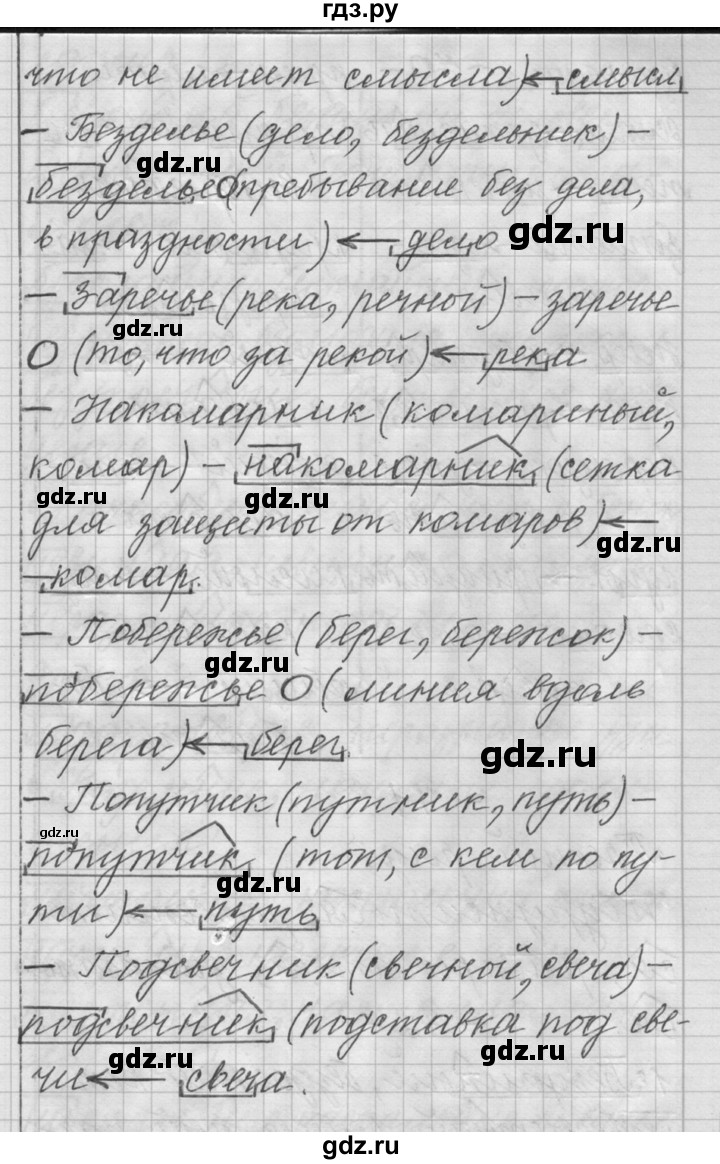 гдз.ру
что не имеет смысла) ← смысл
– Безделье (дело, бездельник) –
gdz.ru gdz.ru
безделье (пребывание без дела,
в праздности) ← дело gdz.ru
– Заречье (река, речной) – заречье
gdz.ru
(то, что за рекой) ← река
– Накомарник (комариный,
комар) – накомарник (сетка
gdz.ru gdz.ru
для защиты от комаров) ←
gdz.ru
– комар.
– Побережье (берег, бережок) –
gdz.ru
побережье (линия вдоль
берега) ← берег. gdz.ru
– Попутчик (путник, путь) –
gdz.ru
попутчик (тот, с кем по пу-
gdz.ru
ти) ← путь
– Подсвечник (свечной, свеча) –
подсвечник (подставка под све-
gdz.ru gdz.ru
чи ← свеча.
gdz.ru